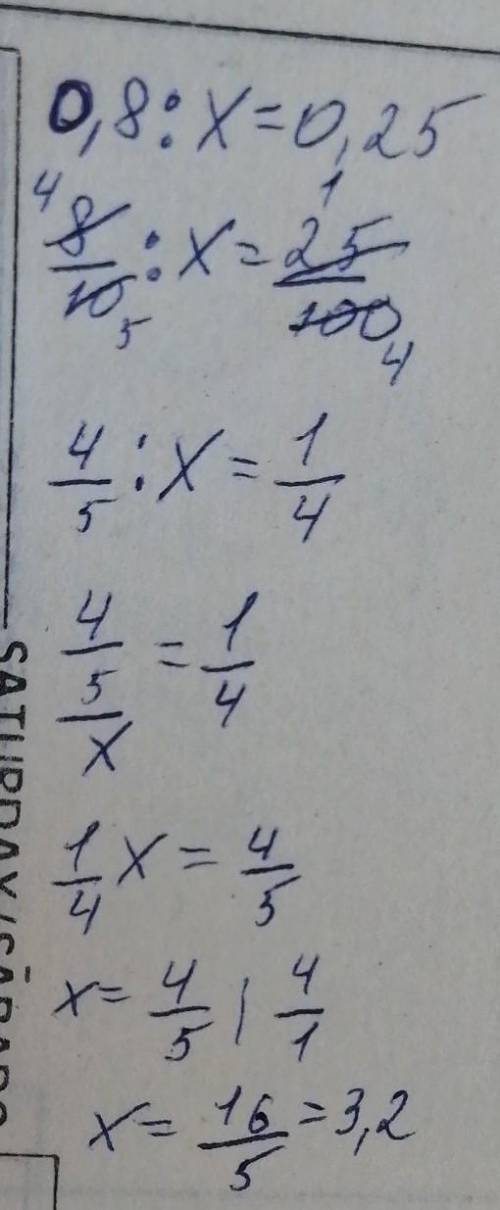 0,8 : x = 0,25
4 8/10 5 : x = 1 25/100 4
4/5 : x = 1/4
4/5/x = 1/4
1/4 x = 4/5
x = 4/5 | 4/1
x = 16/5 = 3,2
SATURDAY/SÁBADO